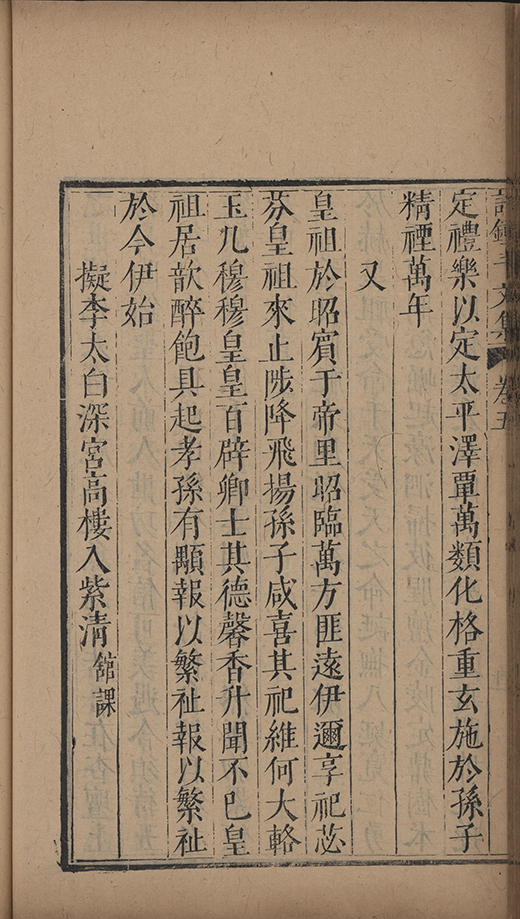 文集 卷五
定禮樂以定太平澤覃萬類化格重玄施於孫子
精禋萬年
又
皇祖於昭賓于帝里昭臨萬方匪遠伊邇享祀苾
芬皇祖來止陟降飛揚孫子咸喜其祀維何大輅
玉几穆穆皇皇百辟卿士其德馨香升聞不巳皇
祖居歆醉飽具起孝孫有顯報以繁祉報以繁祉
於今伊始
擬李太白深宮高樓入紫清 舘課